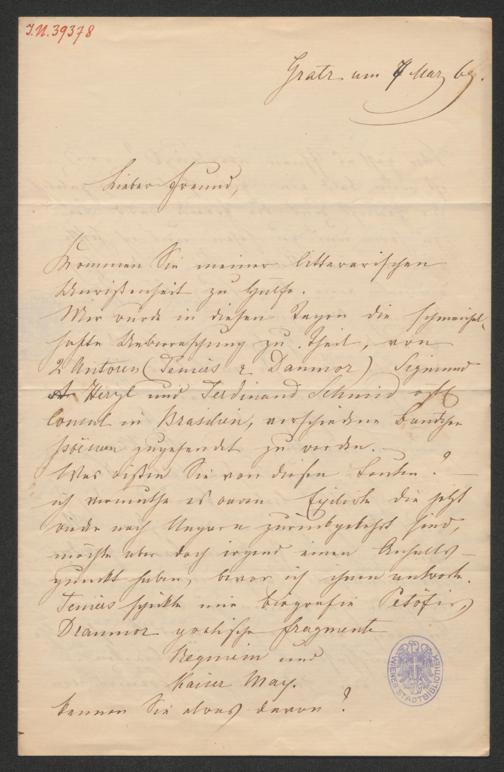 I.N. 39378
Gratz am 7 März 69.
Lieber Freund,
Kommen Sie meiner litterarischen
Unwissenheit zu Hülfe.
Mir wurde in diesen Tagen die schmeichel-
hafte Ueberraschung zu Theil, von
2 Autoren (Teniers & Dranmor) Sigmund
Herzl und Ferdinand Schmid östr
Consul in Brasilien, verschiedene Bändchen
Poësieen zugesendet zu werden. –
Was wissen Sie von diesen Leuten? –
ich vermuthe es waren Exilirte die jetzt
wieder nach Ungarn zurückgekehrt sind,
möchte aber doch irgend einen Anhalts-
punkt haben, bevor ich ihnen antworte.
Teniers schickte mir Biografie Petöfis,
Dranmor poetische Fragmente
Requiem und
Kaiser Max.
kennen Sie etwas davon?
WIENER STADTBIBLIOTHEK